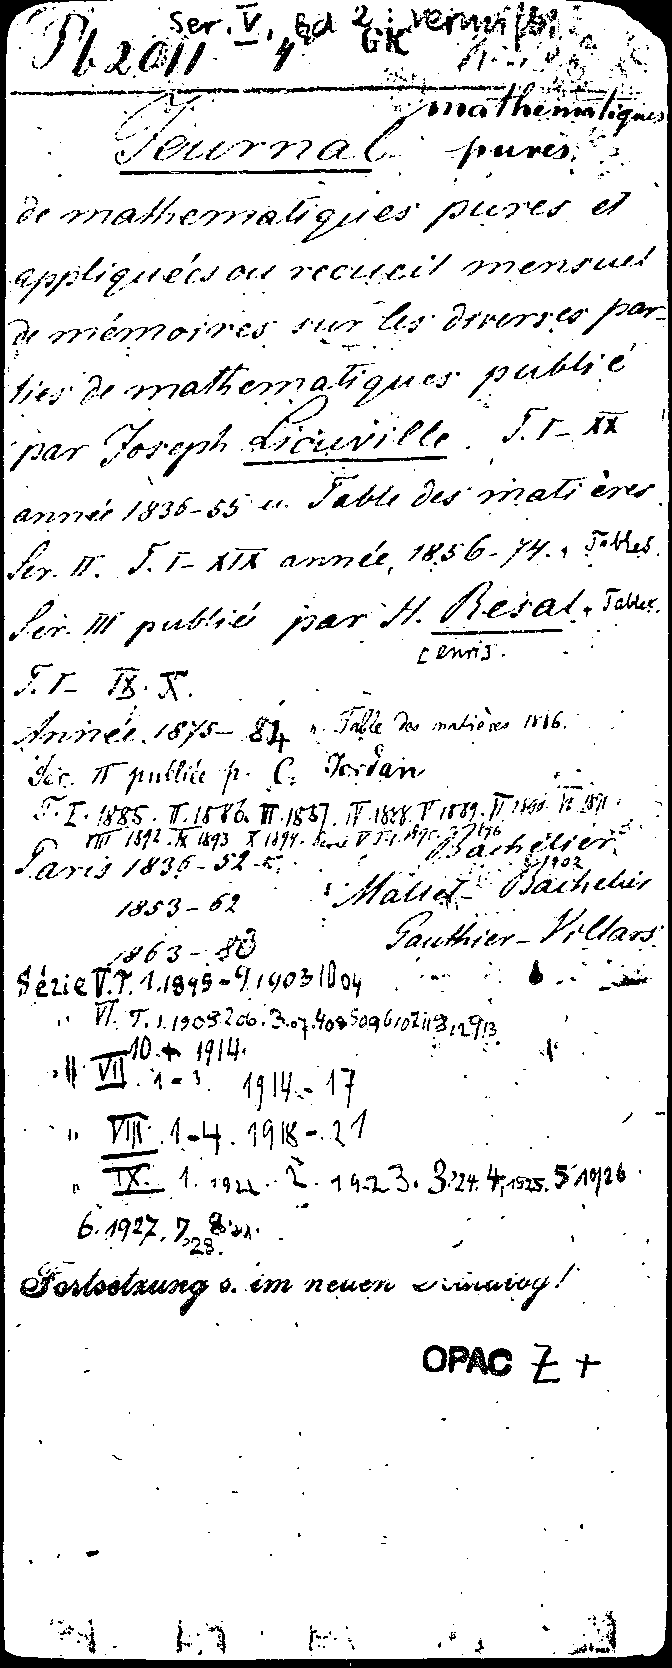 Ser. V, Bd 2 : vermißt
Pb 2011 4° GK
mathématiques
Journal pures
de mathematiques pures et
appliquées ou recueil mensuel
de mémoires sur les diverses par-
ties de mathematiques publié
par Joseph Liouville. T. I - XX
année 1836-55 u. Table des matières.
Ser. II. T. I - XIX année, 1856-74. u. Tables.
Ser. III publié par H. Resal u. Tables.
T. I - IX. X.
Année. 1875 - 84 u. Table des matières
Sér. IV publiée p. C. Jordan
T. I. 1885. II. 1886. III. 1887. IV 1888. V 1889. VI 1890. VII 1891.
VIII 1892. IX 1893 X 1894.
Paris 1836-52 Bachelier
1853-62 Mallet-Bachelier
1863-80 Gauthier-Villars.
Série V. T. 1. 1895 - 9. 1903 10 04
" VI. T. 1. 1905 2 06. 3. 07. 4 08 5 09 6 10 7 11 8, 12 9 13.
10. 1914.
" VII 1-3 1914-17
" VIII. 1-4. 1918-21
" IX. 1. 1922. 2. 1923. 3.'24. 4, 1925. 5 1926
6. 1927. 7, 28.
Fortsetzung s. im neuen Katalog!
OPAC Z +